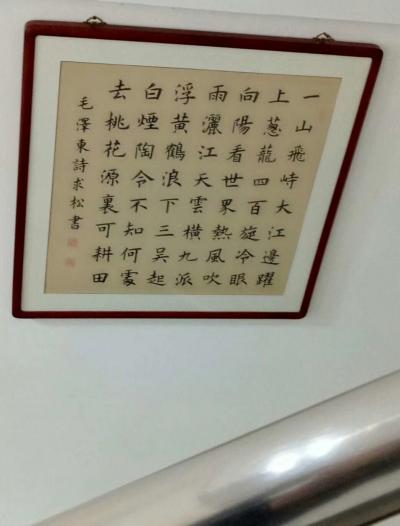 一山飛峙大江邊躍
上葱龍四百旋冷眼
向陽看世界熱風吹
雨灑江天雲橫九派
浮黃鶴浪下三吳起
白煙陶令不知何處
去桃花源裏可耕田
毛澤東詩求松書